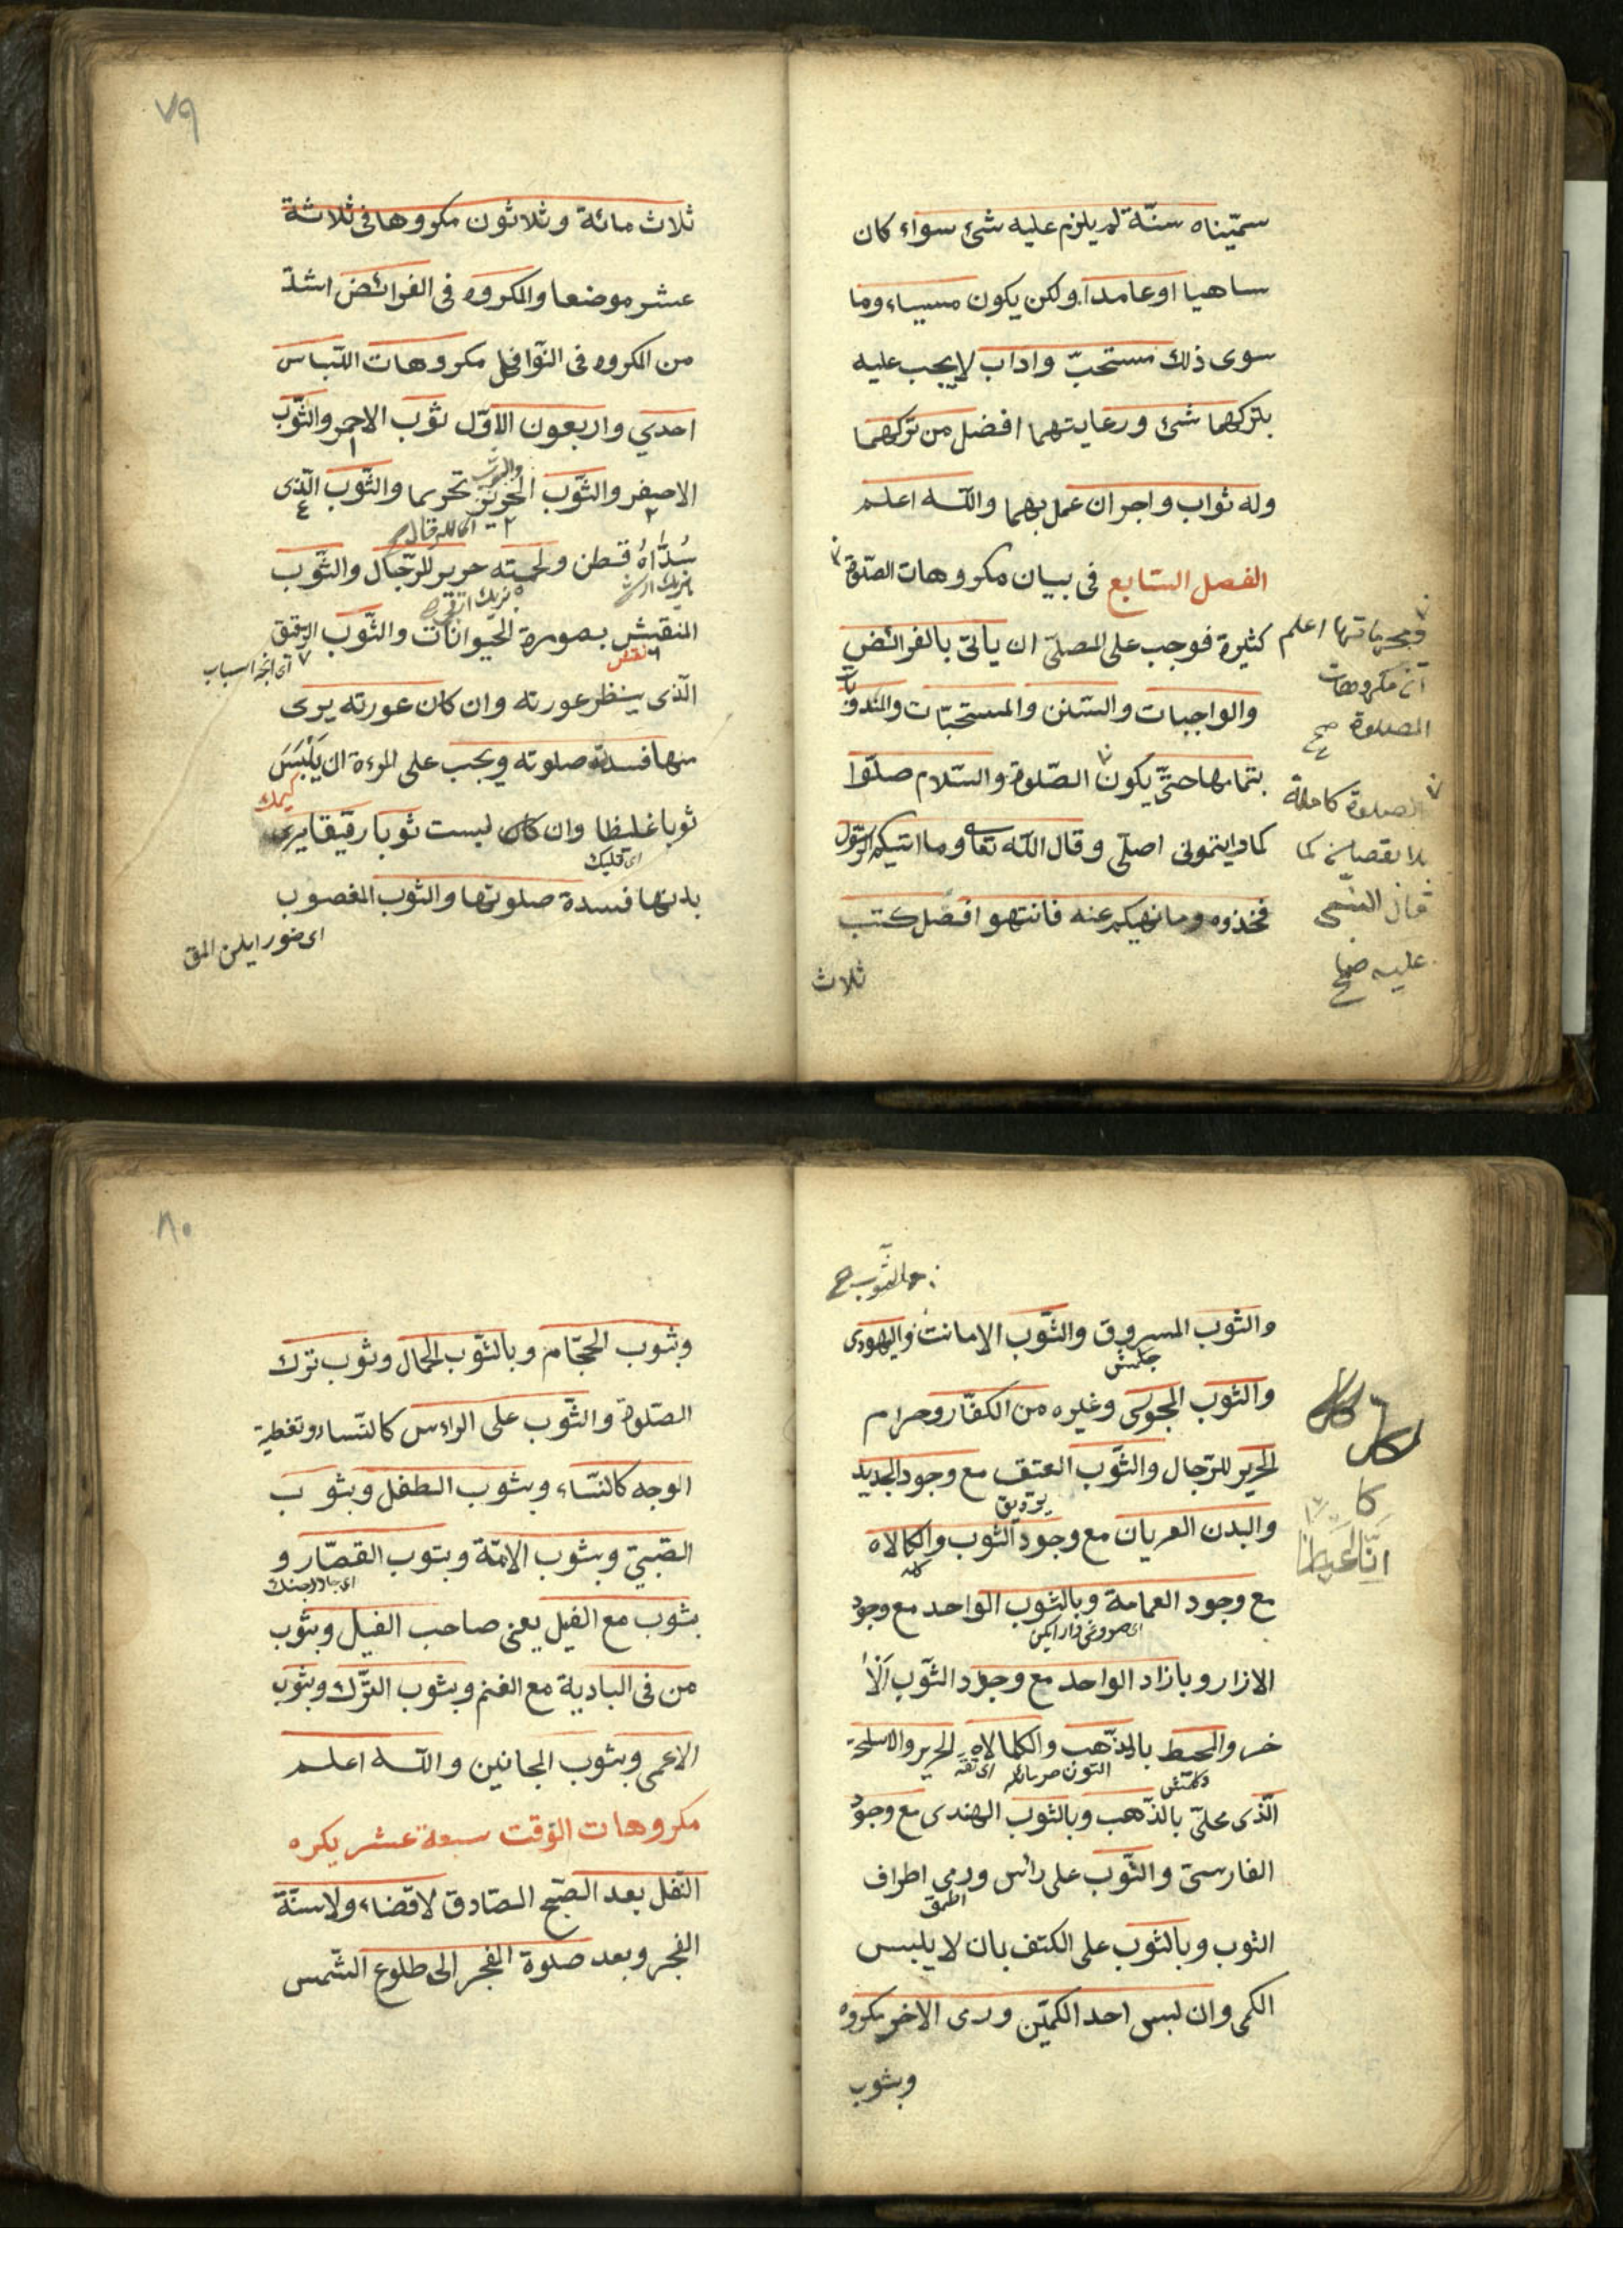 سمّيناه سنّة لم يلزم عليه شئ سواء كان
ساهيا او عامدا ولكن يكون مسيياء وما
سوى ذلك مستحبّ واداب لا يجب عليه
بتركهما شئ ورعايتهما افضل من تركهما
وله ثواب واجر ان عمل بهما والله اعلم
الفصل السّابع فى بيان مكروهات الصّلوة
كثيرة فوجب على المصلّى ان ياتى بالفرائض
والواجبات والسّنن والمستحبّات والمندوبات
بتمامها حتّى يكون الصّلوة والسّلام صلّوا
كما رايتمونى اصلّى وقال الله تعا وما اتيكم الرّسول
فخذوه وما نهيكم عنه فانتهوا فصل كتب
ثلاث
ومحرماتها اعلم
ان مكروهات
الصلوة صح
الصلوة كاملة
بلا نقصان كما
قال النبى
عليه صح
٧٩
ثلاث مائة وثلاثون مكروها فى ثلاثة
عشر موضعا والمكروه فى الفرائض اشدّ
من المكروه فى النّوافل مكروهات اللّباس
احدي واربعون الاوّل ثوب الاحمر والثّوب
والثوب
الاصفر والثّوب الحرير تحريما والثّوب الّذى
سُدَّاهُ قطن ولحمته حرير للرّجال والثّوب
المنقش بصورة الحيوانات والثّوب الرقيق
نقش
الّذى ينظر عورته وان كان عورته يرى
منها فسدة صلوته ويجب على المرءة ان يَلْبَسَ
كيمك
ثوبا غليظا وان كان لبست ثوبا رقيقا يرى
اى قليك
بدنها فسدة صلوتها والثوب المغصوب
والثوب صح
والثوب المسروق والثّوب الامانت واليهودى
والثوب المجوسى وغيره من الكفّار وحرام
الحرير للرّجال والثّوب العتق مع وجود الجديد
والبدن العريان مع وجود الثوب والكالاه
مع وجود العمامة وبالثوب الواحد مع وجود
الازار وبازاد الواحد مع وجود الثّوب اَلْاٰ
خر والمحيط بالذّهب والكالاه الحرير والاسلحة
الّذى محلىّ بالذّهب وبالثوب الهندى مع وجود
الفارسىّ والثّوب على رائس ورمى اطراف
اطمق
الثوب وبالثوب على الكتف بان لا يلبس
الكمى وان لبس احد الكميّن ورمى الاخر مكروه
وبثوب
كا
٨٠
وبثوب الحجّام وبالثّوب الحمال وثوب ترك
الصّلوة والثّوب على الراءس كالنّساء وتغطية
الوجه كالنّساء وبثوب الطفل وبثوب
الصّبىّ وبثوب الامّة وبثوب القصّار و
بثوب مع الفيل يعنى صاحب الفيل وبثوب
من فى البادية مع الغنم وبثوب التّرك وبثوب
الاعمى وبثوب المجانين والله اعلم
مكروهات الوقت سبعة عشر يكره
النّفل بعد الصّبح الصّادق لا قضاء ولا سنّة
الفجر وبعد صلوة الفجر الى طلوع الشّمس